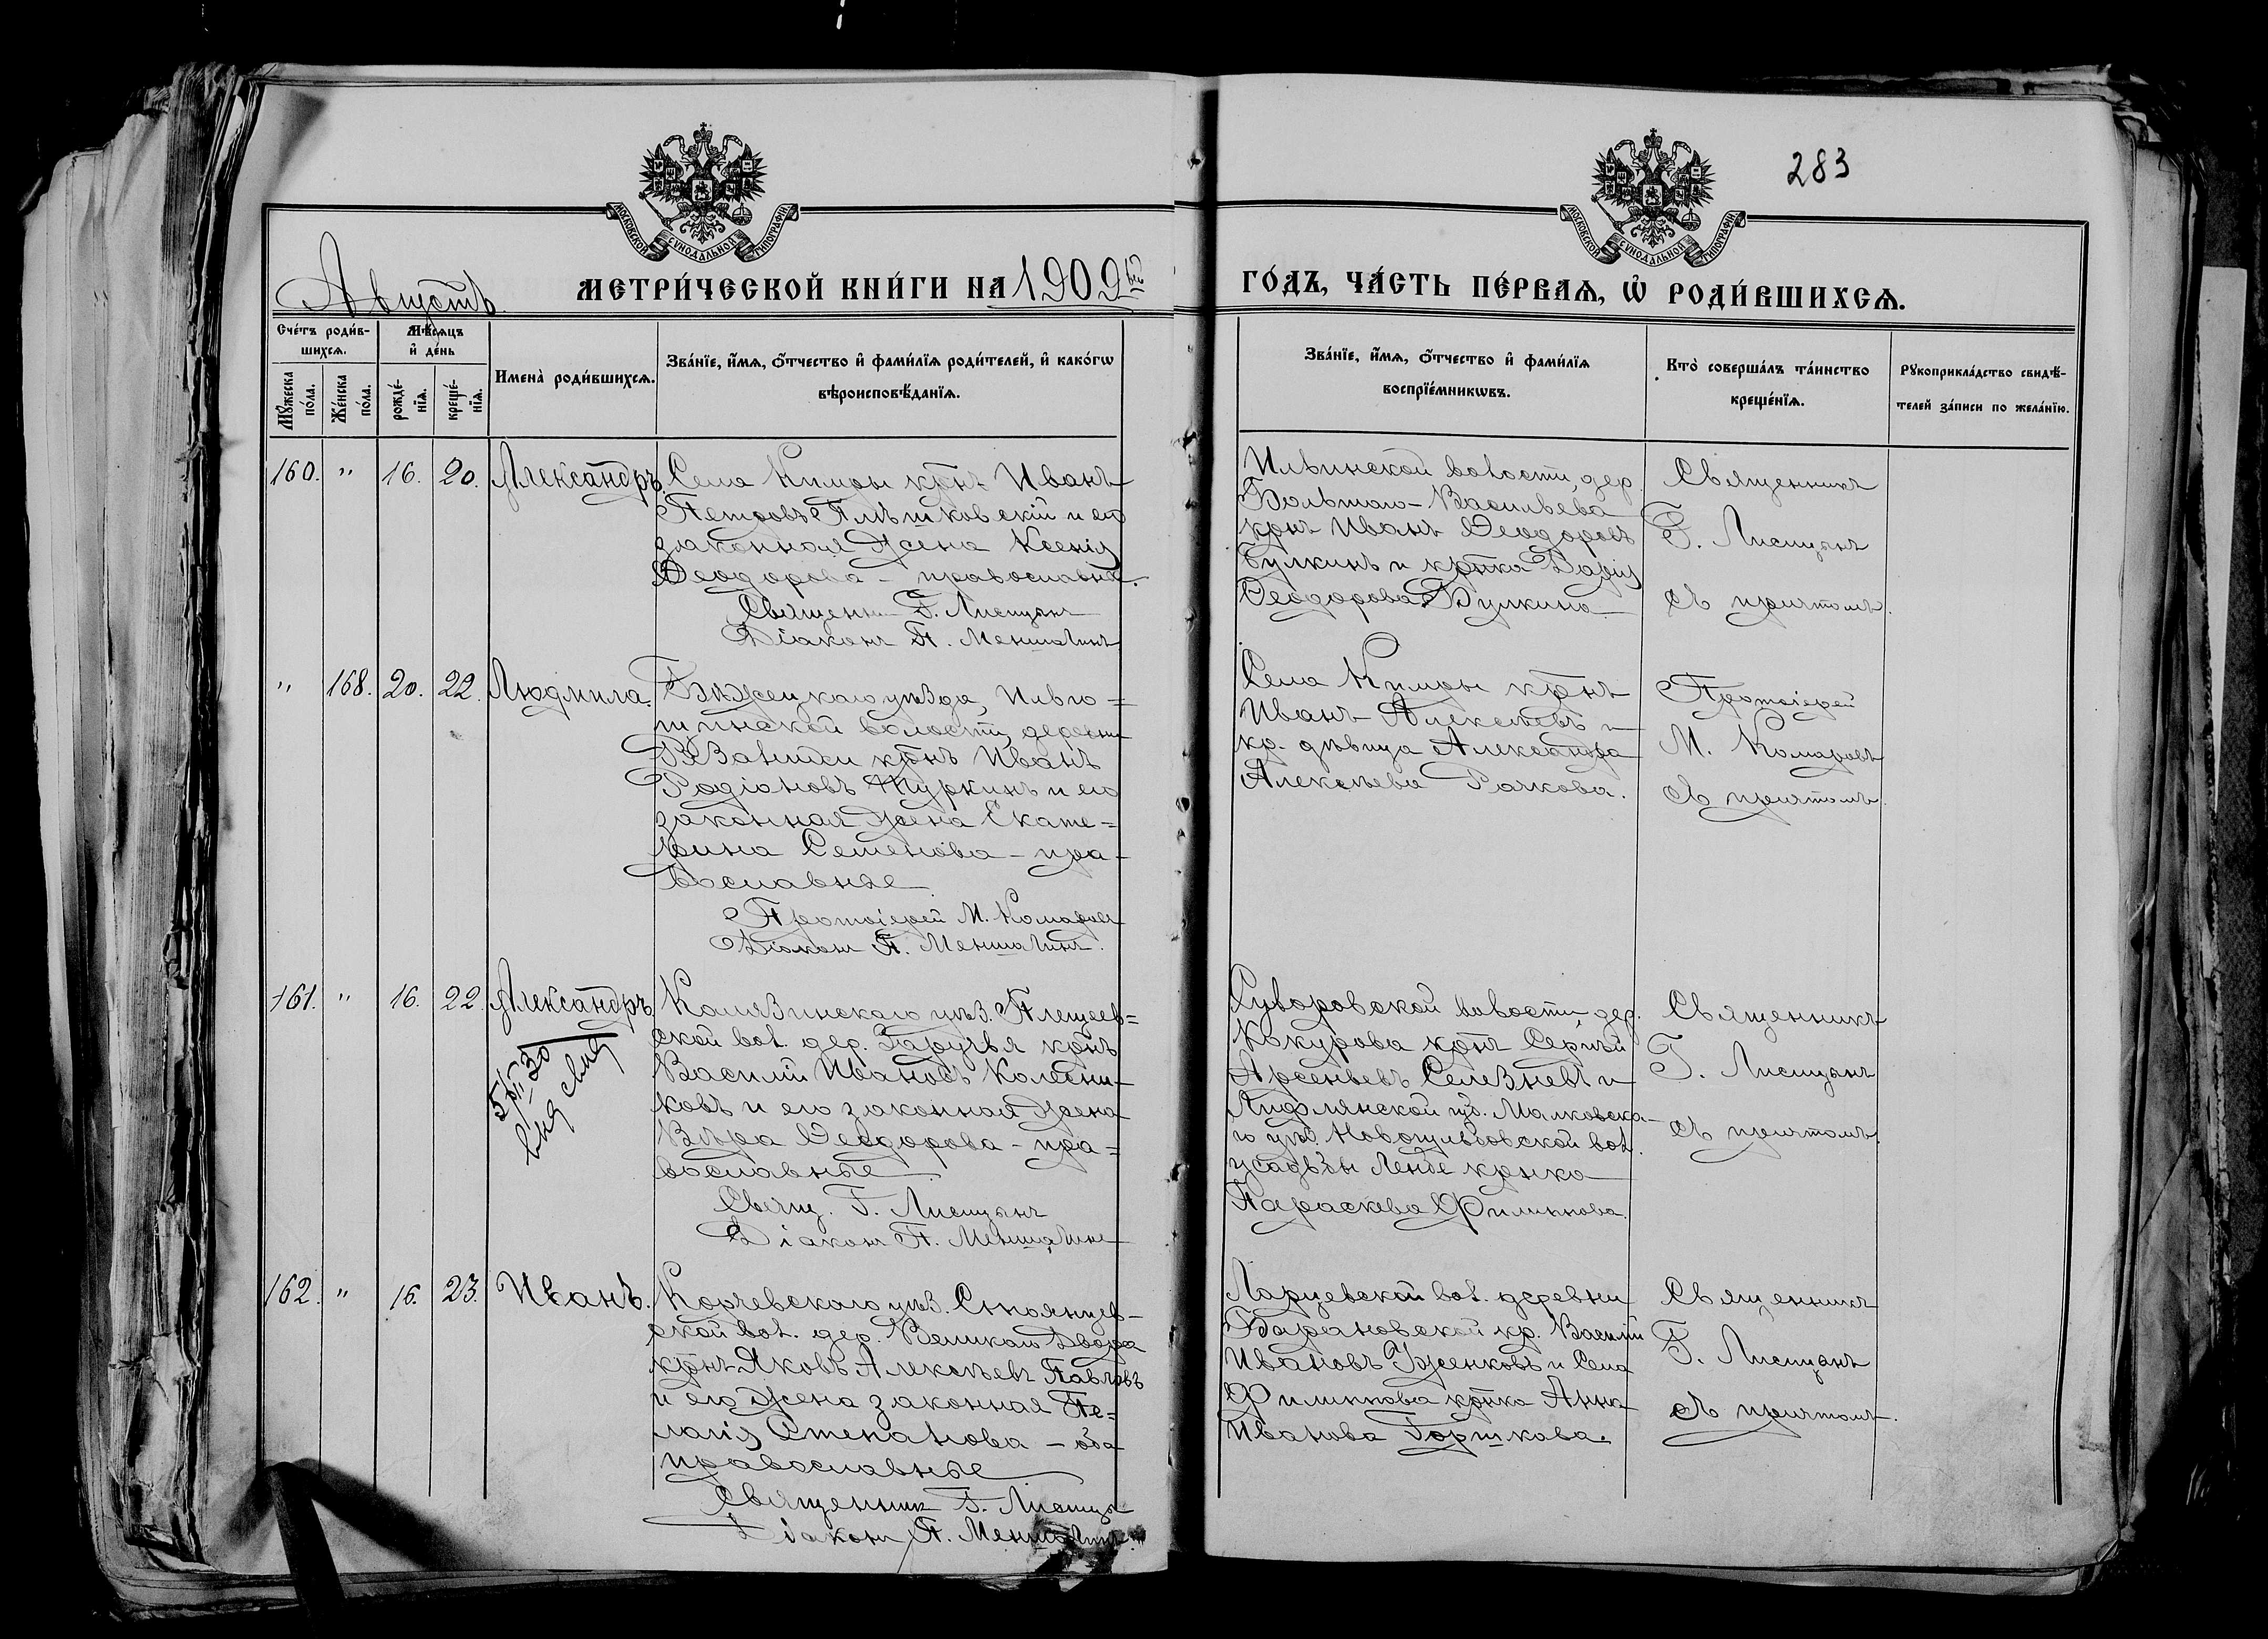 283
МОСКОВСКОЙ СѴНОДАЛЬНОЙ ТИПОГРАФІИ
МОСКОВСКОЙ СѴНОДАЛЬНОЙ ТИПОГРАФІИ
Августъ
МЕТРИ́ЧЕСКОЙ КНИ́ГИ НА 1909й
ГО́ДЪ, ЧА́СТЬ ПЕ́РВАѦ, Ѡ҆ РОДИ́ВШИХСѦ.
Сче́тъ роди́в-
шихсѧ.
Мꙋ́жеска
по́ла.
Же́нска
по́ла.
Мѣ́сѧцъ
и҆ де́нь
рожде́-
нїѧ.
креще́-
нїѧ.
Имена̀ роди́вшихсѧ.
Зва́нїе, и҆́мѧ, ѻ҆́тчество и҆ фами́лїѧ роди́телей, и҆ како́гѡ
вѣроисповѣ́данїѧ.
Зва́нїе, и҆́мѧ, ѻ҆́тчество и҆ фами́лїѧ
воспрїе́мникѡвъ.
Кто̀ соверша́лъ та́инство
креще́нїѧ.
Рꙋкоприкла́дство свидѣ́-
телей за́писи по жела́нїю.
160. " 16. 20. Александръ
Села Кимры крнъ Иванъ
Петровъ Плѣшковскій и его
законная жена Ксенія
Ѳеодорова - православные.
Священн. Г. Лисицынъ
Діаконъ П.
Ильинской волости, дер.
Большого-Васильева
крнъ Иванъ Ѳеодоровъ
Булкинъ и крнка Дарія
Ѳеодорова Булкина
Священникъ
Г. Лисицынъ
съ причтомъ.
" 168. 20. 22. Людмила.
Бѣжецкаго уѣзда,
волости, деревни
крнъ Иванъ
Родіоновъ и его
законная жена Екате=
рина Семенова - пра-
вославные
Протоіерей М. Комаровъ
Діаконъ П.
Села Кимры крнъ
Иванъ Алексѣевъ и
кр. дѣвица Александра
Алексѣева Рачкова.
Протоіерей
М. Комаровъ
съ причтомъ.
161. " 16. 22. Александръ
Калязинскаго уѣз. Плещеев=
ской вол. дер. Заручья крнъ
Василій Ивановъ Колесни-
ковъ и его законная жена
Вѣра Ѳеодорова - пра=
вославные
Свящ. Г. Лисицынъ
Діаконъ П.
Суворовской волости, дер.
Кокурова крнъ Сергѣй
Арсеньевъ Селезневъ и
Лифляндской губ.
го уѣз. вол.
усадьбы крнка
Параскева Филиппова.
Священникъ
Г. Лисицынъ
съ причтомъ.
162. " 16. 23. Иванъ.
Корчевскаго уѣз. Стоянцев-
ской вол. дер. Великаго Двора
крнъ Яковъ Алексѣевъ Павловъ
и его жена законная Пе=
лагія Степанова - оба
православные
Священникъ Г. Лисицы
Діаконъ П.
Ларцевской вол. деревни
Барановской кр. Василій
Ивановъ и Села
Филиппова крнка Анна
Иванова Горшкова.
Священникъ
Г. Лисицынъ
съ причтомъ.